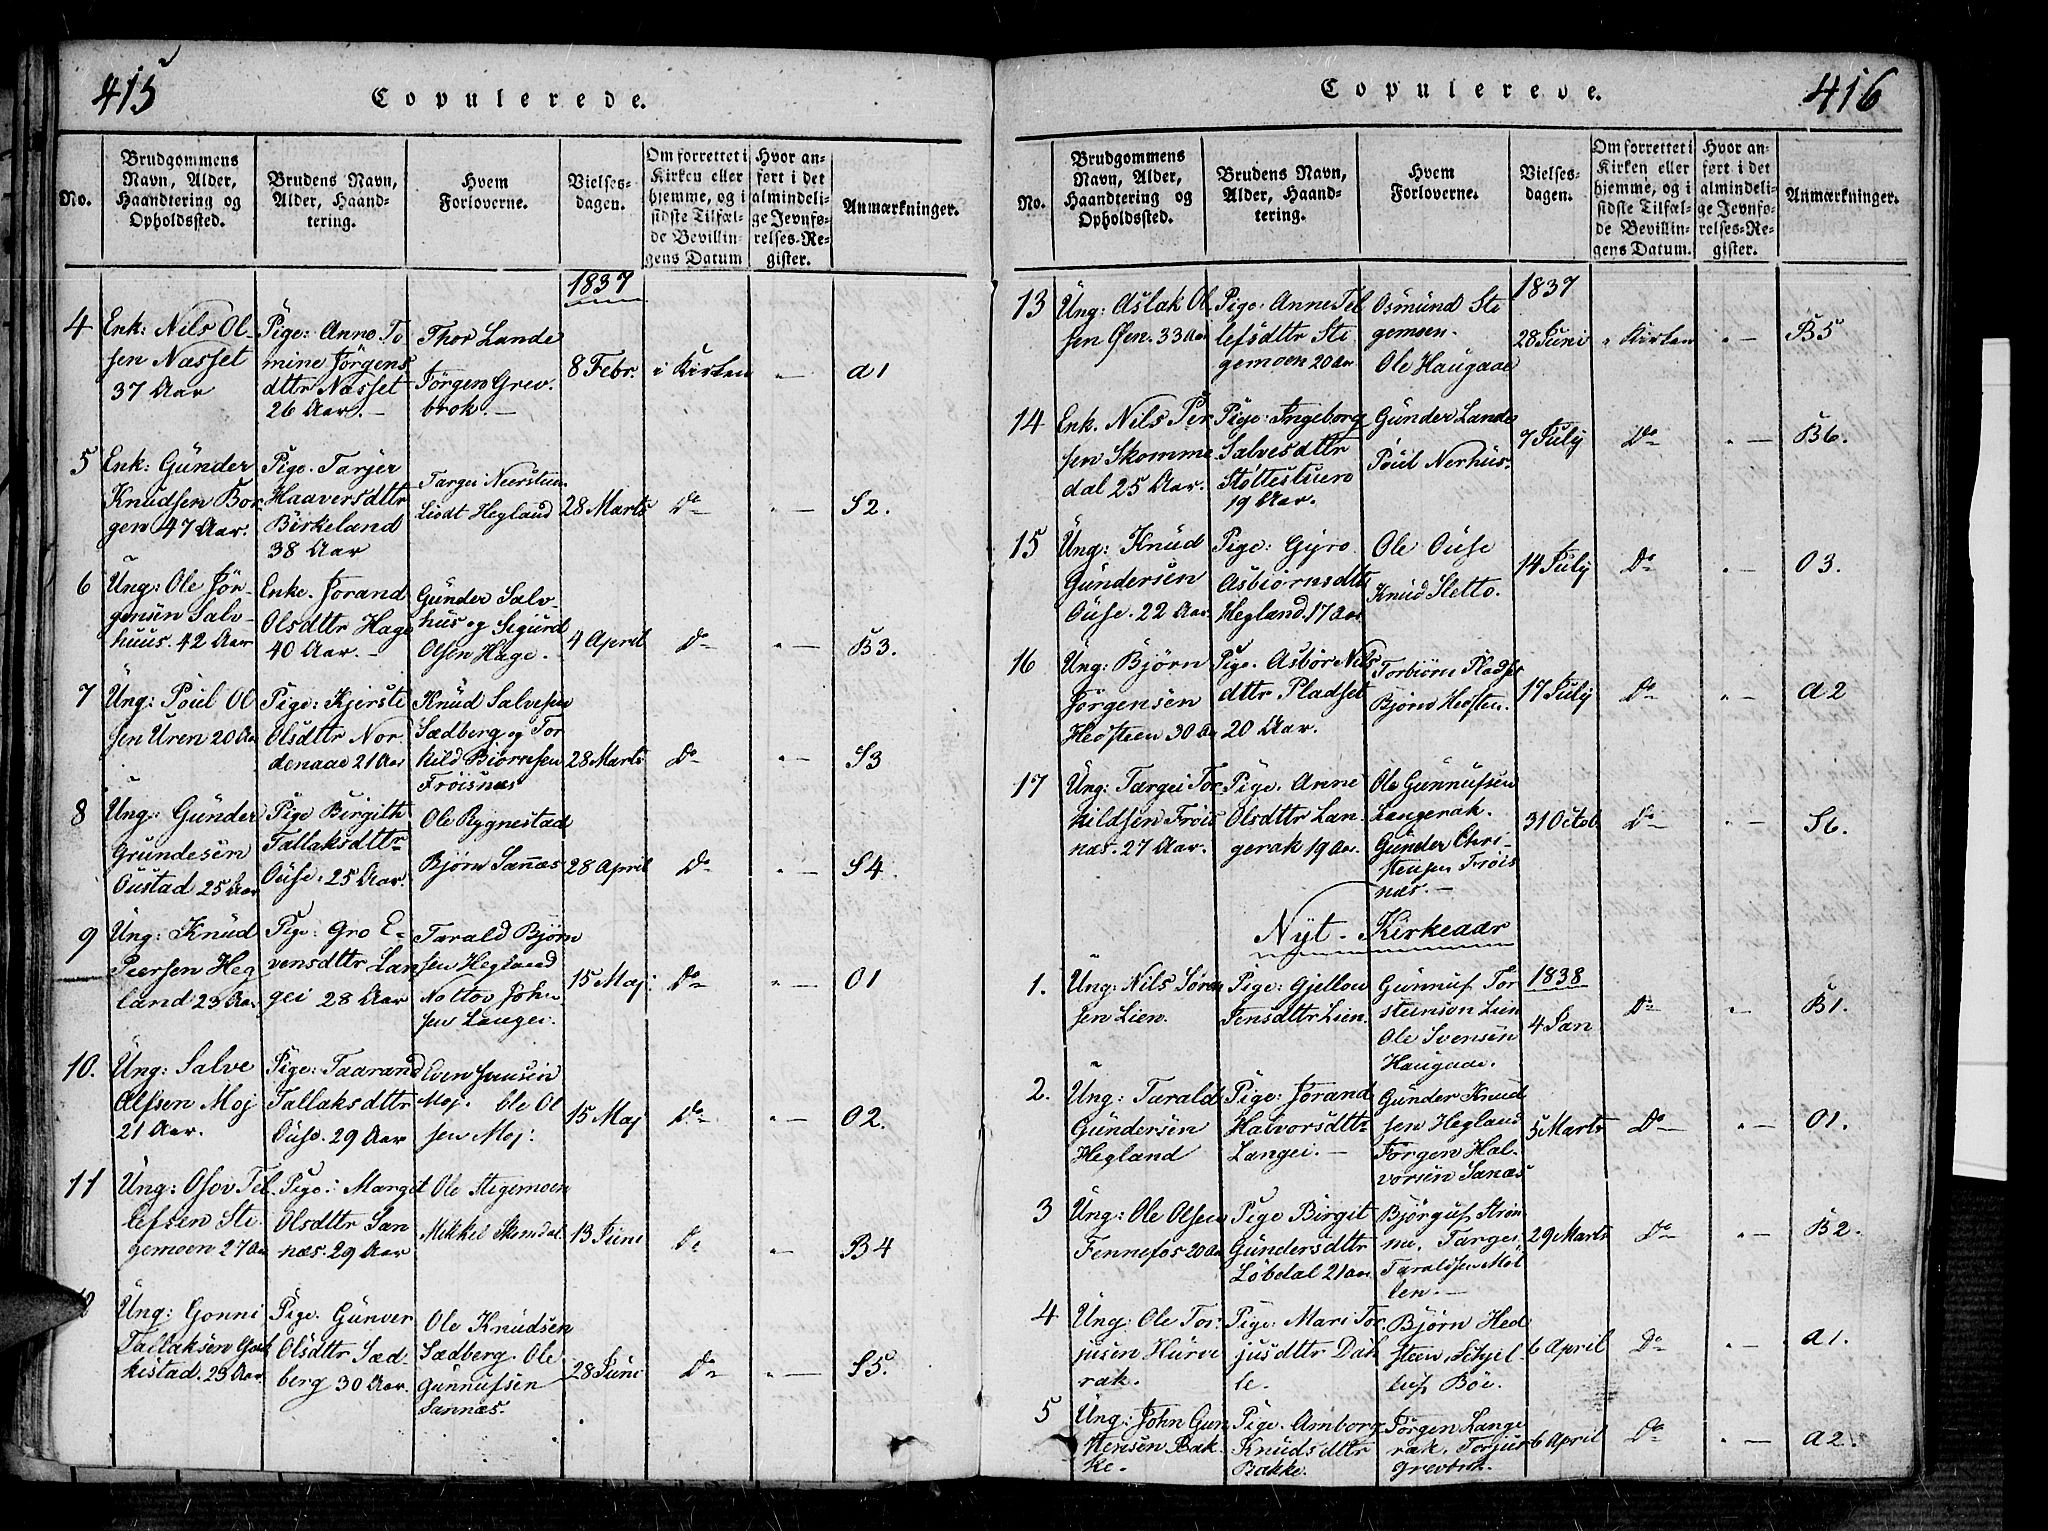 415
Copulerede.
No.
Brudgommens
Navn, Alder,
Haandtering og
Opholdssted.
Brudens Navn,
Alder, Haand-
tering.
Hvem
Forloverne.
Vielses-
dagen.
Om forrettet i
Kirken eller
hjemme, og i
sidste Tilfæl-
de Bevillin-
gens Datum
Hvor an-
ført i det
almindeli-
ge Jevnfø-
relses-Re-
gister.
Anmærkninger.
1837
4
Enk: Nils Ol-
sen Nasset
37 Aar
Pige: Anne To
mine Jörgens
dttr Nasset
26 Aar. –
Thor Lande
Jörgen Grev
brok. –
8 Febr.
i Kirken
" –
A1
5
Enk: Günder
Knudsen Bor
gen 47 Aar.
Pige. Tarjer
Haaversdttr
Birkeland
38 Aar
Targei
Liödt Hegland
28 Marts
Do
" –
S2.
6
Üng: Ole Jör-
gensen Salv-
huus. 42 Aar
Enke. Jorand
Olsdttr Hage
40 Aar. –
Günder Salv-
hüs og Sigurd
Olsen Hage.
4 April
Do
" –
B3.
7
Üng: Poül Ol
sen Uren 20 Aar
Pige: Kjersti
Olsdttr Nor-
denaae 21 Aar
Knüd Salvesen
Sædberg og Tor
kild Biörnsen
Fröisnæs
28 Marts
Do
" –
S3
8
Üng: Günder
Grundesen
Oustad 25 Aar
Pige Birgith
Tallaksdttr
Ouse. 25 Aar.
Ole Rygnestad
Bjørn Sanæs
28 April
Do
" –
S4.
9
Üng: Knüd
Peersen Heg
land: 23 Aar.
Pige: Gro E-
vensdttr Lan
gei 28 Aar
Tarald Bjørn
sen Hegland
Nottov John
sen Langei.
15 Maj
Do
" –
O1
10.
Üng: Salve
Alfsen Moj
21 Aar.
Pige: Taarand
Tallaksdttr
Ouse. 29 Aar
Even Jensen
Moj. Ole Ol
sen Moj:
15 Maj
Do
" –
O2.
11
Üng: Osov Tel
lefsen Sti-
gemoen 27 Aar
Pige: Margit
Olsdttr San
næs. 29 Aar
Ole Stigemoen
Mikkel Skomdal
13 Juni
Do
" –
B4
Üng: Gonni
Tallaksen
kistad. 23 Aar.
Pige. Günver
Olsdttr Sæd-
berg 30 Aar.
Ole Knüdsen
Sædberg. Ole
Gunnufsen
Sannæs.
28 Juni
Do
" –
S5.
Copulerede.
416
No.
Brudgommens
Navn, Alder,
Haandtering og
Opholdssted.
Brudens Navn,
Alder, Haand-
tering.
Hvem
Forloverne.
Vielses-
dagen.
Om forrettet i
Kirken eller
hjemme, og i
sidste Tilfæl-
de Bevillin-
gens Datum.
Hvor an-
ført i det
almindeli-
ge Jevnfø-
relses-Re-
gister.
Anmærkninger.
1837
13
Üng: Aslak Ol
sen Øen. 33 Aar
Pige. Anne Tel
lefsdttr Sti
gemoen 20 Aar
Osmünd Sti
gemoen.
Ole Haugaae
28 Juni
i Kirken
" –
B5
14
Enk. Nils Per
sen Skomme
dal 25 Aar.
Pige: Ingeborg
Salvesdttr
Støttestuen
19 Aar.
Günder Lande
Poül Nerhüs
7 July
Do
" –
B6.
15
Üng: Knüd
Gündersen
Ouse. 22 Aar.
Pige: Gyro
Asbiörnsdttr
Hegland. 17 Aar
Ole Ouse
Knüd Sletto.
14 July
Do
" –
O3.
16
Üng: Björn
Jørgensen
Heösteen 30 Aar
Pige. Asbör Nils
dttr Pladset
20 Aar.
Torbiörn Pladset
Björn Heösten.
17 July
Do
" –
A2
17
Üng: Targei Tor
kildsen Fröis
næs. 27 Aar.
Pige. Anne
Olsdttr Lan-
gerak 19 Aar.
Ole Gunnufsen
Langerak.
Günder Chri-
stensen Fröis
næs. –
31 Octob.
Do
" –
S6.
Nyt - Kirkeaar
1838
1.
Üng: Nils Sören
sen Lien.
Pige: Gjellou
Jensdttr Lien
Gunnuf Tor
steinson Lien
Ole Svensen
Haugaae.
4 Jan
Do
" –
B1.
2.
Üng: Tarald
Gündersen
Hegland
Pige: Jorand
Halvorsdttr
Langei. –
Günder Knud
sen Hegland
Jørgen Hal-
vorsen Sanæs
5 Marts
Do
" –
O1.
3
Üng: Ole Olsen
Fennefos 20 Aar
Pige Birgit
Gündersdttr
Löbdal 21 Aar
Björguf Ström
me. Targei
Taraldsen Möl
len. –
29 Marts
Do
" –
B2.
4
Üng: Ole Tor-
jusen Hürve
rak.
Pige: Mari Tor
jusdttr Dah
le.
Björn Hed
steen. Schjel-
luf Böe.
6 April
Do
" –
A1.
5
Üng: John Gun
stensen Bak
ke.
Pige. Amborg
Knudsdttr
Bakke.
Jörgen Lange
rak. Torjus
Grevbrok.
6 April
Do
" –
A2.